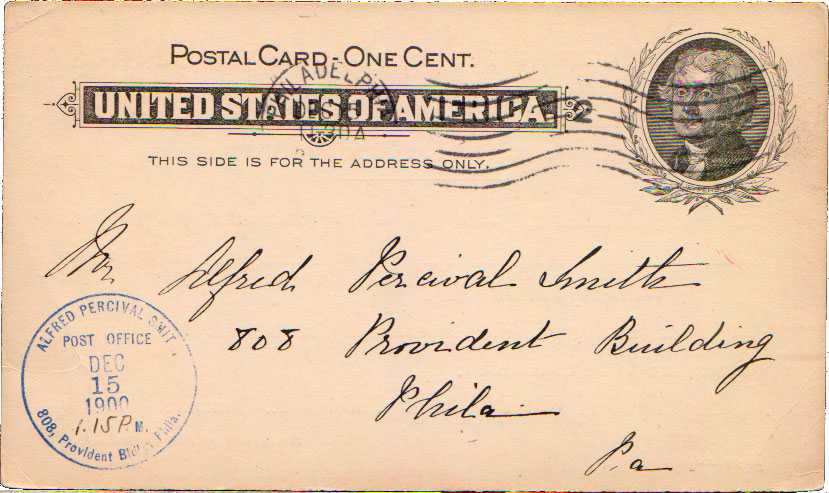 POSTAL CARD - ONE CENT.
PHILADELPHIA
UNITED STATES OF AMERICA.
THIS SIDE IS FOR THE ADDRESS ONLY.
Mr Alfred Percival Smith
808 Provident Building
Phila
Pa
ALFRED PERCIVAL SMITH
POST OFFICE
DEC
15
1900
1.15 P.M.
808, Provident Bldg., Phila.